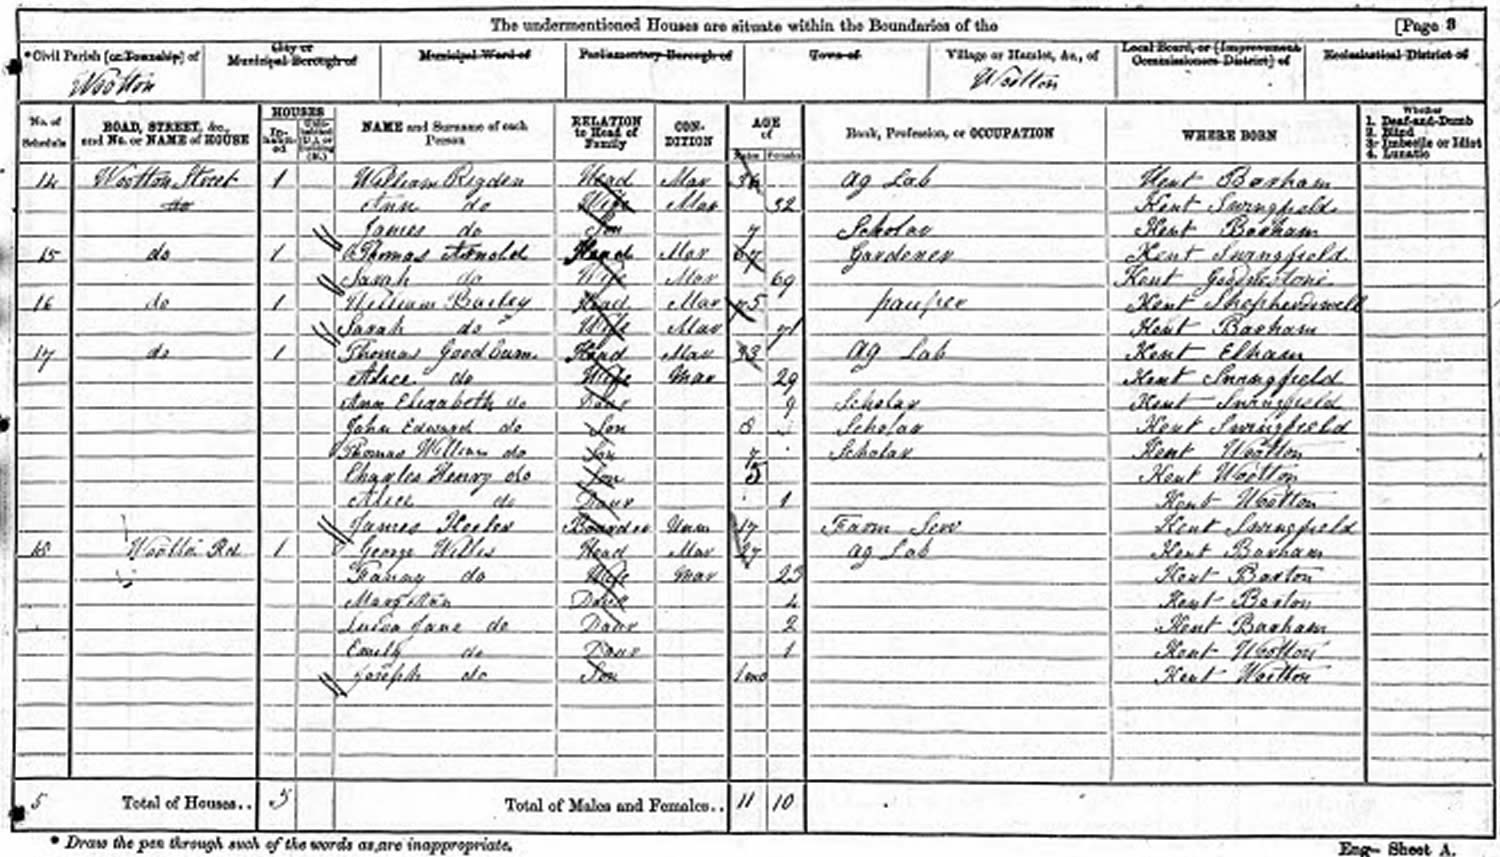 The undermentioned Houses are situate within the Boundaries of the [Page 3
*Civil Parish [or Township] of City or Municipal Borough of Municipal Ward of Parliamentary Borough of Town of Village or Hamlet, &c., of Local Board, or [Improvement Commissioners District] of Ecclesiastical District of
Wootton Wootton
No. of Schedule ROAD, STREET, &c., and No. or NAME of HOUSE HOUSES In-habited Unin-habited (U.), or Building (B.) NAME and Surname of each Person RELATION to Head of Family CON-DITION AGE of Males Females Rank, Profession, or OCCUPATION WHERE BORN Whether 1. Deaf-and-Dumb 2. Blind 3. Imbecile or Idiot 4. Lunatic
14 Wootton Street 1 William Rigden Head Mar 36 Ag Lab Kent Barham
do Ann do Wife Mar 32 Kent Swingfield
James do Son 7 Scholar Kent Barham
15 do 1 Thomas Arnold Head Mar 67 Gardener Kent Swingfield
Sarah do Wife Mar 69 Kent
16 do 1 William Bailey Head Mar 75 pauper Kent Shepherdswell
Sarah do Wife Mar 71 Kent Barham
17 do 1 Thomas Goodburn Head Mar 33 Ag Lab Kent Elham
Alice do Wife Mar 29 Kent Swingfield
Ann Elizabeth do Daur 9 Scholar Kent Swingfield
John Edward do Son 8 Scholar Kent Swingfield
Thomas William do Son 7 Scholar Kent Wootton
Charles Henry do Son 5 Kent Wootton
Alice do Daur 1 Kent Wootton
James Boarder Unm 17 Farm Serv Kent Swingfield
18 Wootton Rd 1 George Willis Head Mar 27 Ag Lab Kent Barham
Fanny do Wife Mar 23 Kent Barton
Mary Ann Daur 4 Kent Barton
Jane do Daur 2 Kent Barham
Emily do Daur 1 Kent Wootton
Joseph do Son 1 mo Kent Wootton
5 Total of Houses.. 5 Total of Males and Females.. 11 10
* Draw the pen through such of the words as are inappropriate.
Eng— Sheet A.